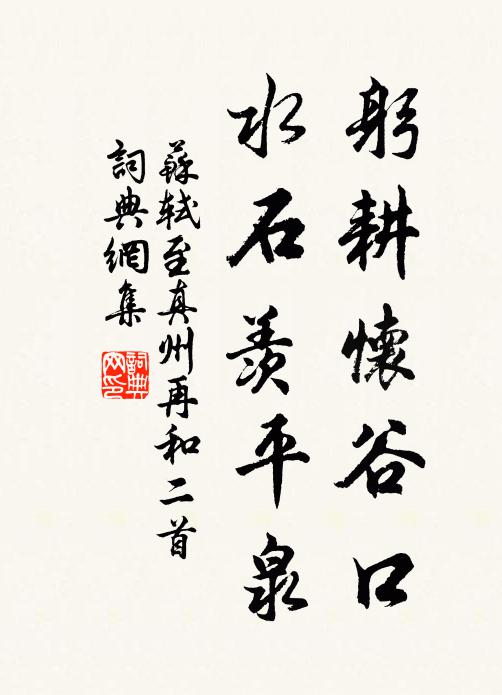 躬耕懷谷口
水石羨平泉
蘇軾至真州再和二首
詞典網集
詞典网印